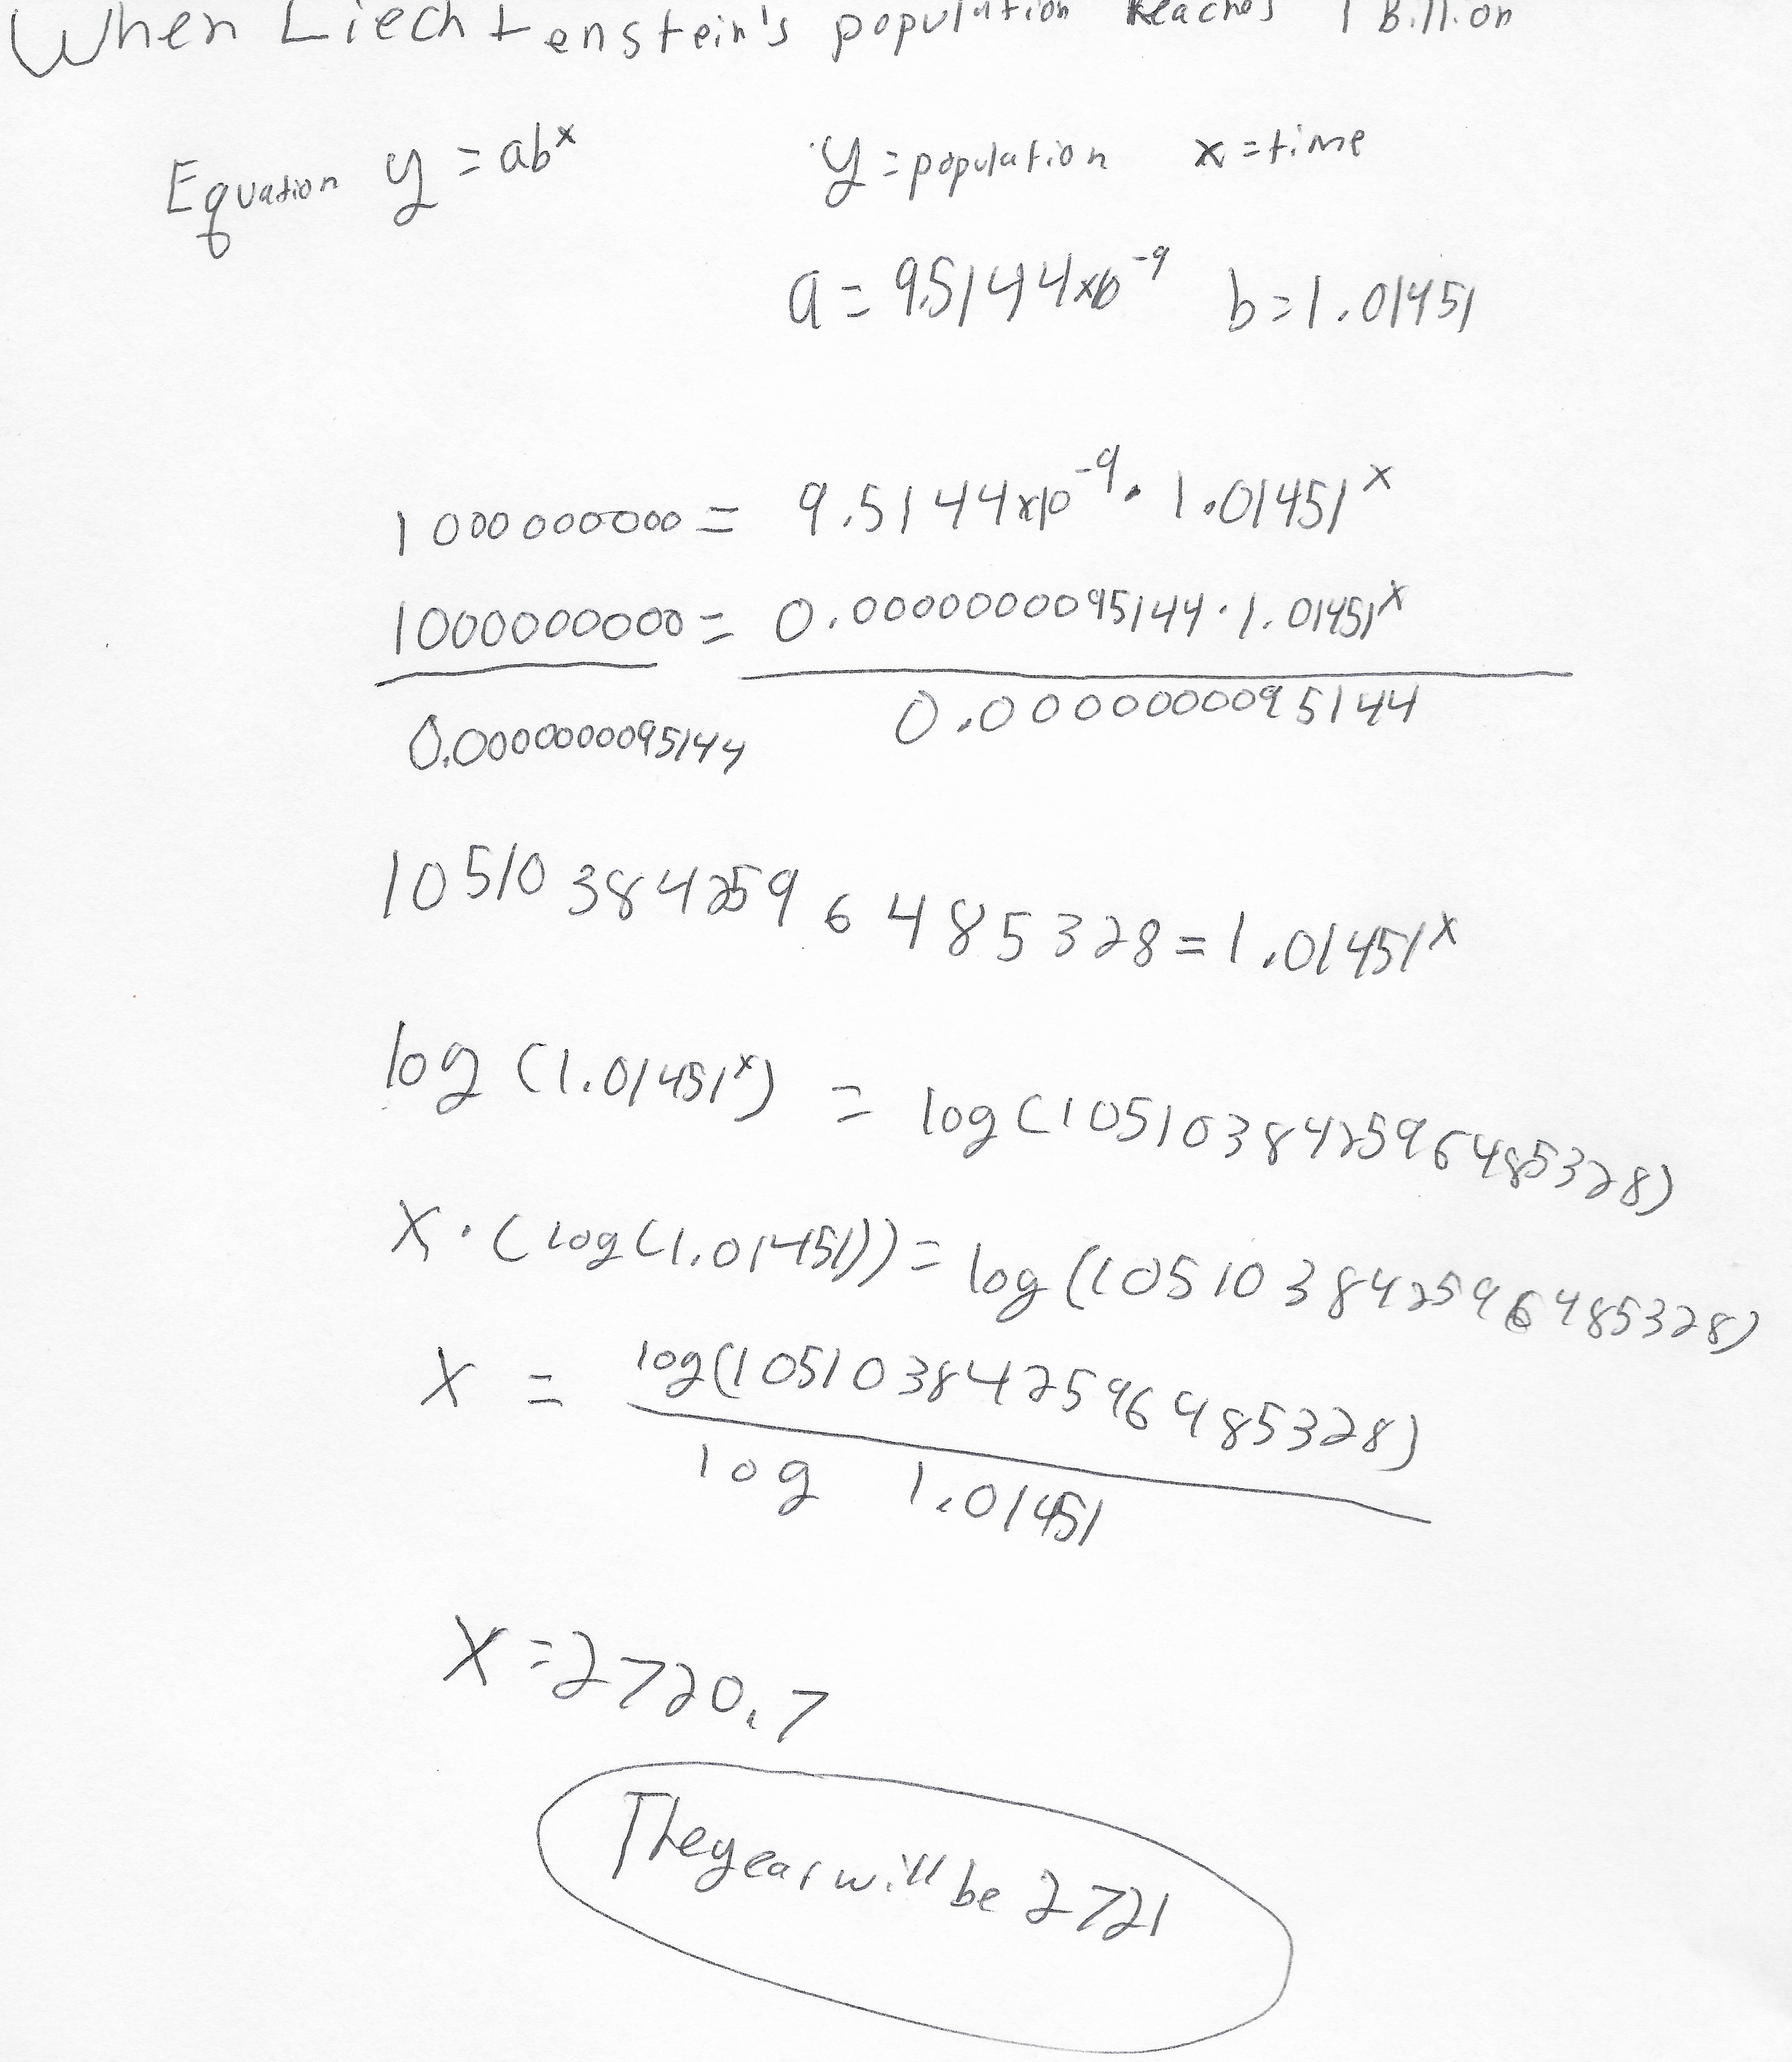 When Liechtenstein's population Reaches 1 Billion
Equation y = ab^x
y = population x = time
a = 9.5144x10^-9 b = 1.01451
1000000000 = 9.5144x10^-9 · 1.01451^x
1000000000 = 0.0000000095144 · 1.01451^x
0.0000000095144 0.0000000095144
105103842596485328 = 1.01451^x
log (1.01451^x) = log(105103842596485328)
X · (log(1.01451)) = log(105103842596485328)
X = log(105103842596485328)
log 1.01451
X = 2720.7
The year will be 2721